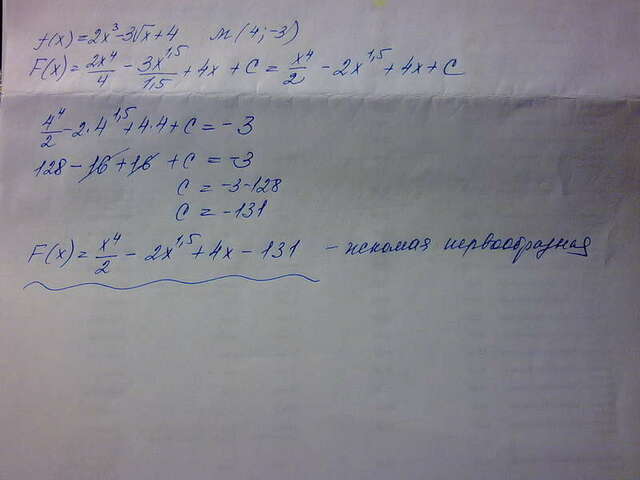 f(x) = 2x³ - 3√x + 4 M(4; -3)
F(x) = 2x⁴/4 - 3x^1,5/1,5 + 4x + C = x⁴/2 - 2x^1,5 + 4x + C
4⁴/2 - 2·4^1,5 + 4·4 + C = -3
128 - 16 + 16 + C = -3
C = -3-128
C = -131
F(x) = x⁴/2 - 2x^1,5 + 4x - 131 - искомая первообразная